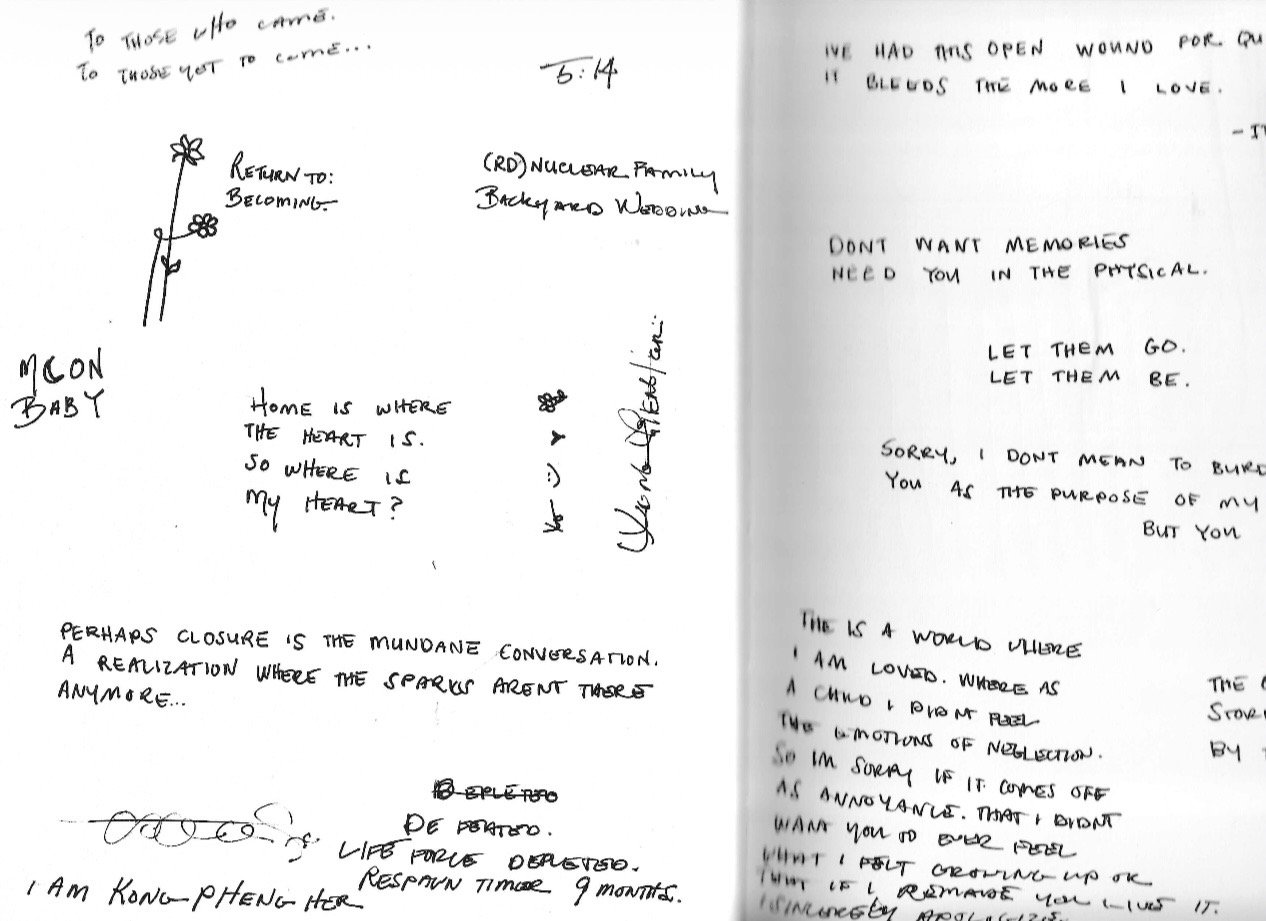 TO THOSE WHO CAME.
TO THOSE YET TO COME...
5:14
RETURN TO:
BECOMING.
(RD) NUCLEAR FAMILY
BACKYARD WEDDING
MOON
BABY
HOME IS WHERE
THE HEART IS.
SO WHERE IS
MY HEART?
PERHAPS CLOSURE IS THE MUNDANE CONVERSATION.
A REALIZATION WHERE THE SPARKS ARENT THERE
ANYMORE...
DEPLETED
DEFEATED.
LIFE FORCE DEPLETED.
RESPAWN TIMER 9 MONTHS.
I AM KONG PHENG HER
IVE HAD THIS OPEN WOUND FOR QU
IT BLEEDS THE MORE I LOVE.
- IT
DONT WANT MEMORIES
NEED YOU IN THE PHYSICAL.
LET THEM GO.
LET THEM BE.
SORRY, I DONT MEAN TO BURD
YOU AS THE PURPOSE OF MY
BUT YOU
THE IS A WORLD WHERE
I AM LOVED. WHERE AS
A CHILD I DIDNT FEEL
THE EMOTIONS OF NEGLECTION.
SO IM SORRY IF IT COMES OFF
AS ANNOYANCE. THAT I DIDNT
WANT YOU TO EVER FEEL
WHAT I FELT GROWING UP OR
THAT IF I REMADE YOU LIVE IT.
I SINCERELY APOLOGIZE.
THE
STOR
BY